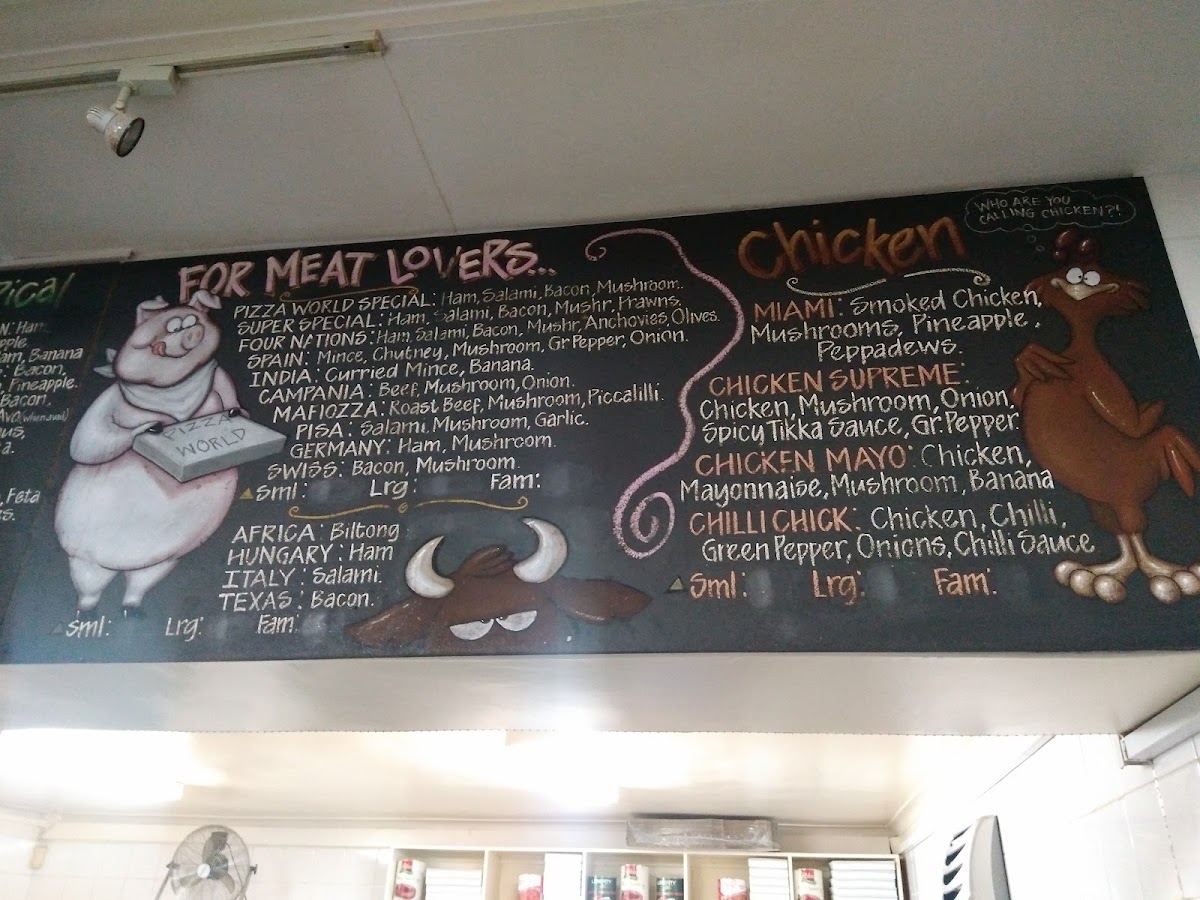 pical
N: Ham,
pple
am, Banana
Bacon,
Pineapple.
Bacon,
AVO (when avail)
us,
a.
, Feta
s.
FOR MEAT LOVERS...
PIZZA WORLD SPECIAL: Ham, Salami, Bacon, Mushroom.
SUPER SPECIAL: Ham, Salami, Bacon, Mushr, Prawns.
FOUR NATIONS: Ham, Salami, Bacon, Mushr, Anchovies, Olives.
SPAIN: Mince, Chutney, Mushroom, Gr Pepper, Onion.
INDIA: Curried Mince, Banana.
CAMPANIA: Beef, Mushroom, Onion.
MAFIOZZA: Roast Beef, Mushroom, Piccalilli.
PISA: Salami, Mushroom, Garlic.
GERMANY: Ham, Mushroom.
SWISS: Bacon, Mushroom.
Sml: Lrg: Fam:
AFRICA: Biltong
HUNGARY: Ham
ITALY: Salami.
TEXAS: Bacon.
Sml: Lrg: Fam:
PIZZA
WORLD
Chicken
WHO ARE YOU
CALLING CHICKEN?!
MIAMI: Smoked Chicken,
Mushrooms, Pineapple,
Peppadews.
CHICKEN SUPREME:
Chicken, Mushroom, Onion,
Spicy Tikka Sauce, Gr. Pepper.
CHICKEN MAYO: Chicken,
Mayonnaise, Mushroom, Banana
CHILLI CHICK: Chicken, Chilli,
Green Pepper, Onions, Chilli Sauce
Sml: Lrg: Fam: